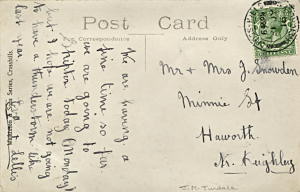 Post Card
For Correspondence
Address Only
We are having a
fine time so far
we are going to
Skipton Today (Monday)
but I hope we are not going
to have a thunderstorm like
last year.
Mr & Mrs J. Snowden
Minnie St
Haworth
Nr. Keighley
Series, Crosshills.